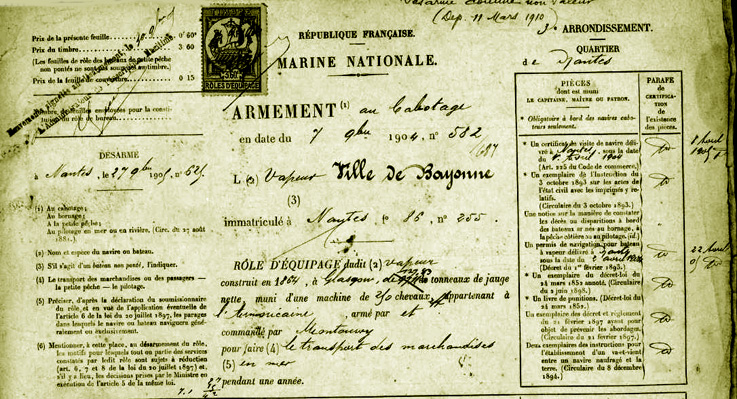 Désarmé comme non valeur
(Dép. 11 Mars 1910)
Prix de la présente feuille
0 60
Prix du timbre
3 60
(Les feuilles de rôle des bateaux de petite pêche
non pontés ne sont pas soumises au timbre.
Prix de la feuille de couverture
0 15
Nombre de feuilles employées pour la consti-
tution du rôle de bureau.
DÉSARMÉ
à Nantes, le 27 9bre 1905, n° 625
(1) Au cabotage;
Au bornage;
A la petite pêche;
Au pilotage en mer ou en rivière. (Circ. du 27 août
1881.)
(2) Nom et espèce du navire ou bateau.
(3) S'il s'agit d'un bateau non ponté, l'indiquer.
(4) Le transport des marchandises ou des passagers —
la petite pêche — le pilotage.
(5) Préciser, d'après la déclaration du soumissionnaire
du rôle, et en vue de l'application éventuelle de
l'article 6 de la loi du 20 juillet 1897, les parages
dans lesquels le navire ou bateau naviguera généra-
lement ou exclusivement.
(6) Mentionner, à cette place, au désarmement du rôle,
les motifs pour lesquels tout ou partie des services
constatés par ledit rôle sont sujets à réduction
(art. 6, 7 et 8 de la loi du 20 juillet 1897) et,
s'il y a lieu, les décisions prises par le Ministre en
exécution de l'article 5 de la même loi.
RÔLES D'ÉQUIPAGE
RÉPUBLIQUE FRANÇAISE.
MARINE NATIONALE.
ARMEMENT (1) au Cabotage
en date du 7 9bre 1904, n° 582
687
L (2) Vapeur Ville de Bayonne
(3)
immatriculé à Nantes f° 86, n° 255.
RÔLE D'ÉQUIPAGE dudit (2) Vapeur
construit en 1864, à Glasgow de tonneaux de jauge
nette muni d'une machine de 210 chevaux, appartenant à
l'armoricaine, armé par et
commandé par
pour faire (4) le transport des marchandises
(5) en mer
pendant une année.
3e ARRONDISSEMENT.
QUARTIER
de Nantes
PIÈCES
dont est muni
LE CAPITAINE, MAÎTRE OU PATRON.
* Obligatoire à bord des navires cabo-
teurs seulement.
PARAFE
de
CERTIFICA-
TION
de
l'existence
des pièces.
* Un certificat de visite de navire déli-
vré à Nantes, sous la date
du 8 Avril 1904
(Art. 225 du Code de commerce.)
* Un exemplaire de l'Instruction du
3 octobre 1893 sur les actes de
l'état civil avec les imprimés y re-
latifs.
(Circulaire du 3 octobre 1893.)
Une notice sur la manière de constater
les décès ou disparitions à bord des
bateaux armés au bornage, à la
pêche côtière ou au pilotage. (id.)
Un permis de navigation pour bateau
à vapeur délivré à Nantes
sous la date du avril
(Décret du 1er février 1893.)
* Un exemplaire du décret-loi du
24 mars 1852 annoté. (Circulaire
du 2 juin 1898.)
* Un livre de punitions. (Décret-loi du
24 mars 1852.)
Un exemplaire des décret et règlement
du 21 février 1897 ayant pour
objet de prévenir les abordages.
(Circulaire du 21 février 1897.)
Deux exemplaires des instructions pour
l'établissement d'un va-et-vient
entre un navire naufragé et la
terre. (Circulaire du 8 décembre
1894.)
8 Avril
1905
22 Avril
05